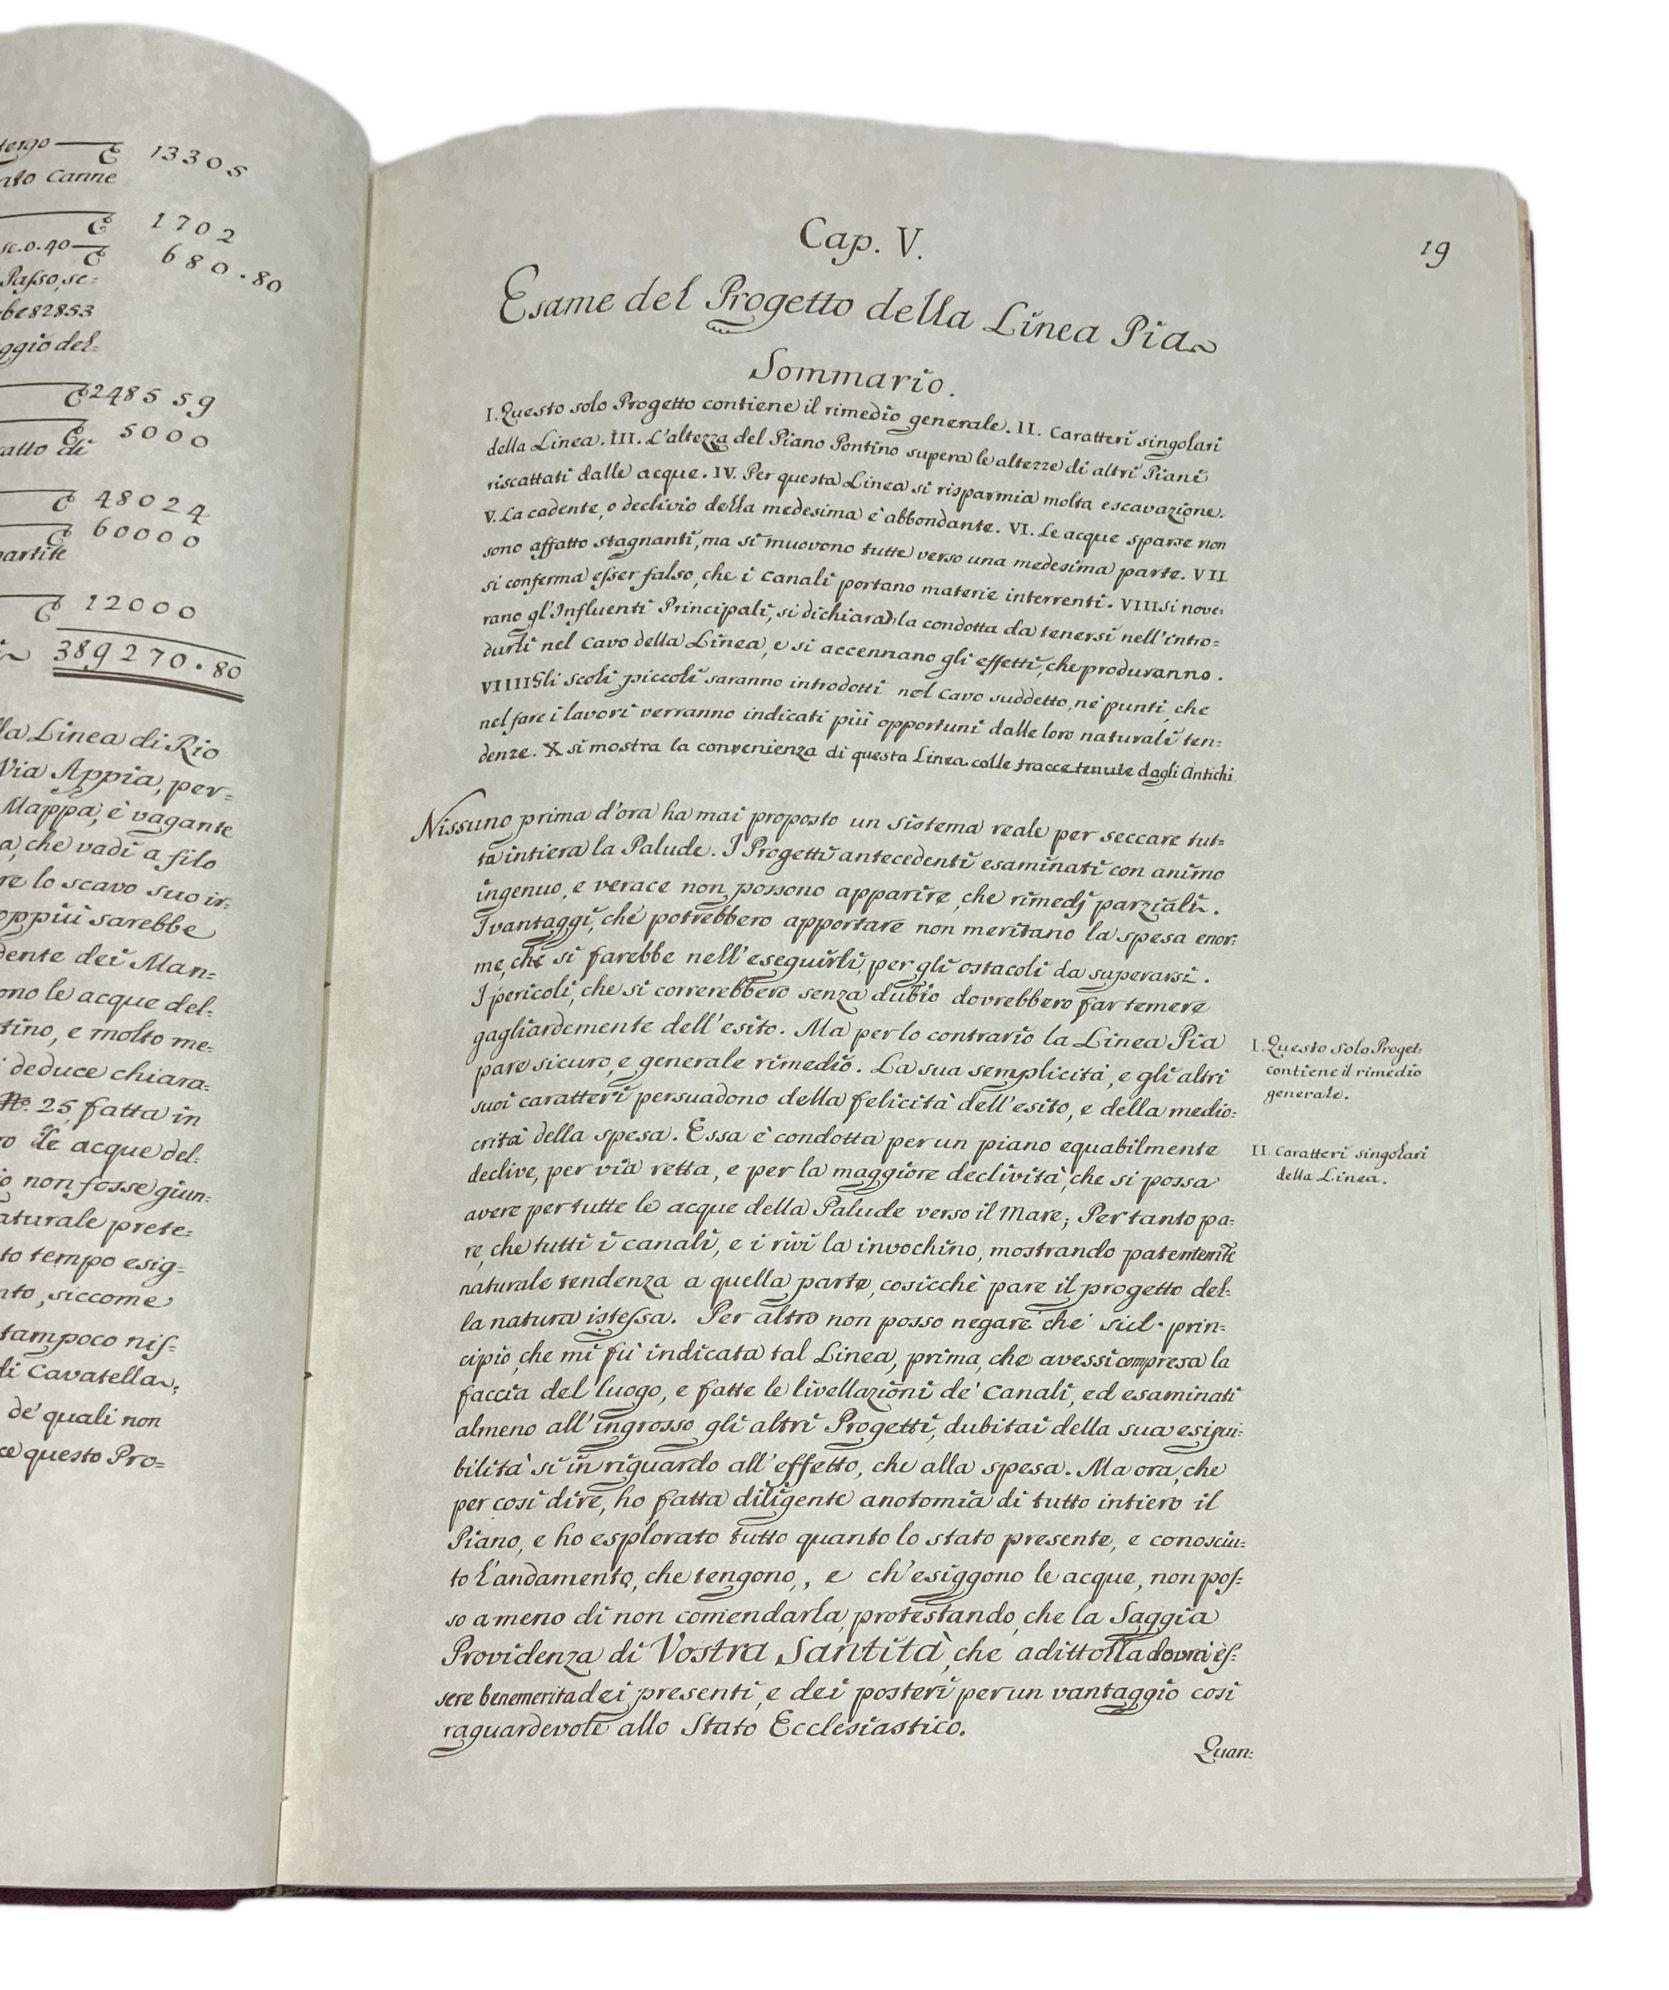 tergo — 13305
ato Canne
1702
sc.0.40 — 680.80
Passo, se=
be 82853
ggio del=
248559
5000
atto di
48024
60000
partite
12000
389270.80
la Linea di Rio
Via Appia, per=
Mappa, è vagante
a, che vadi a filo
re lo scavo suo ir=
oppiù sarebbe
dente dei Man=
ono le acque del=
tino, e molto me=
deduce chiara=
No. 25 fatta in
ro le acque del=
io non fosse giun=
aturale prete=
to tempo esig=
nto, siccome
tampoco nis=
di Cavatella,
de' quali non
ce questo Pro=
19
Cap. V.
Esame del Progetto della Linea Pia
Sommario.
I. Questo solo Progetto contiene il rimedio generale. II. Caratteri singolari
della Linea. III. L'altezza del Piano Pontino supera le altezze di altri Piani
riscattati dalle acque. IV. Per questa Linea si risparmia molta escavazione.
V. La cadente, o declivio della medesima è abbondante. VI. Le acque sparse non
sono affatto stagnanti, ma si muovono tutte verso una medesima parte. VII
si conferma esser falso, che i Canali portano materie interrenti. VIII Si nove=
rano gl'Influenti Principali, si dichiara la condotta da tenersi nell'intro=
durli nel Cavo della Linea, e si accennano gli effetti, che produranno.
VIIII Gli scoli piccoli saranno introdotti nel Cavo suddetto, ne' punti, che
nel fare i lavori verranno indicati più opportuni dalle loro naturali ten=
denze. X si mostra la convenienza di questa Linea colle tracce tenute dagli Antichi.
Nissuno prima d'ora ha mai proposto un sistema reale per seccare tut=
ta intiera la Palude. I Progetti antecedenti esaminati con animo
ingenuo, e verace non possono apparire, che rimedj parziali.
I vantaggi, che potrebbero apportare non meritano la spesa enor=
me, che si farebbe nell'eseguirli, per gli ostacoli da superarsi.
I pericoli, che si correrebbero senza dubio dovrebbero far temere
gagliardemente dell'esito. Ma per lo contrario la Linea Pia
pare sicuro, e generale rimedio. La sua semplicità, e gli altri
suoi caratteri persuadono della felicità dell'esito, e della medio=
crità della spesa. Essa è condotta per un piano equabilmente
declive, per via retta, e per la maggiore declività, che si possa
avere per tutte le acque della Palude verso il Mare; Pertanto pa=
re, che tutti i canali, e i rivi la invochino, mostrando patentemte
naturale tendenza a quella parte, cosicchè pare il progetto del=
la natura istessa. Per altro non posso negare che sul prin=
cipio, che mi fù indicata tal Linea, prima, che avessi compresa la
faccia del luogo, e fatte le livellazioni de' Canali, ed esaminati
almeno all'ingrosso gli altri Progetti, dubitai della sua esigui=
bilità sì in riguardo all'effetto, che alla spesa. Ma ora, che
per così dire, ho fatta diligente anotomia di tutto intiero il
Piano, e ho esplorato tutto quanto lo stato presente, e conosciu=
to l'andamento, che tengono, e ch'esiggono le acque, non pos=
so a meno di non comendarla, protestando, che la Saggia
Providenza di Vostra Santità, che adittolla dovrà es=
sere benemerita dei presenti, e dei posteri per un vantaggio così
raguardevole allo Stato Ecclesiastico.
Quan=
I. Questo solo Proget=
contiene il rimedio
generale.
II. Caratteri singolari
della Linea.